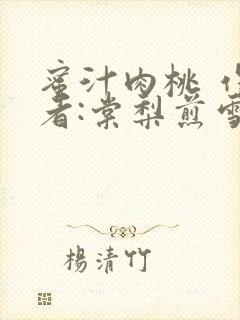 蜜汁肉桃
者:棠梨煎雪
楊清竹